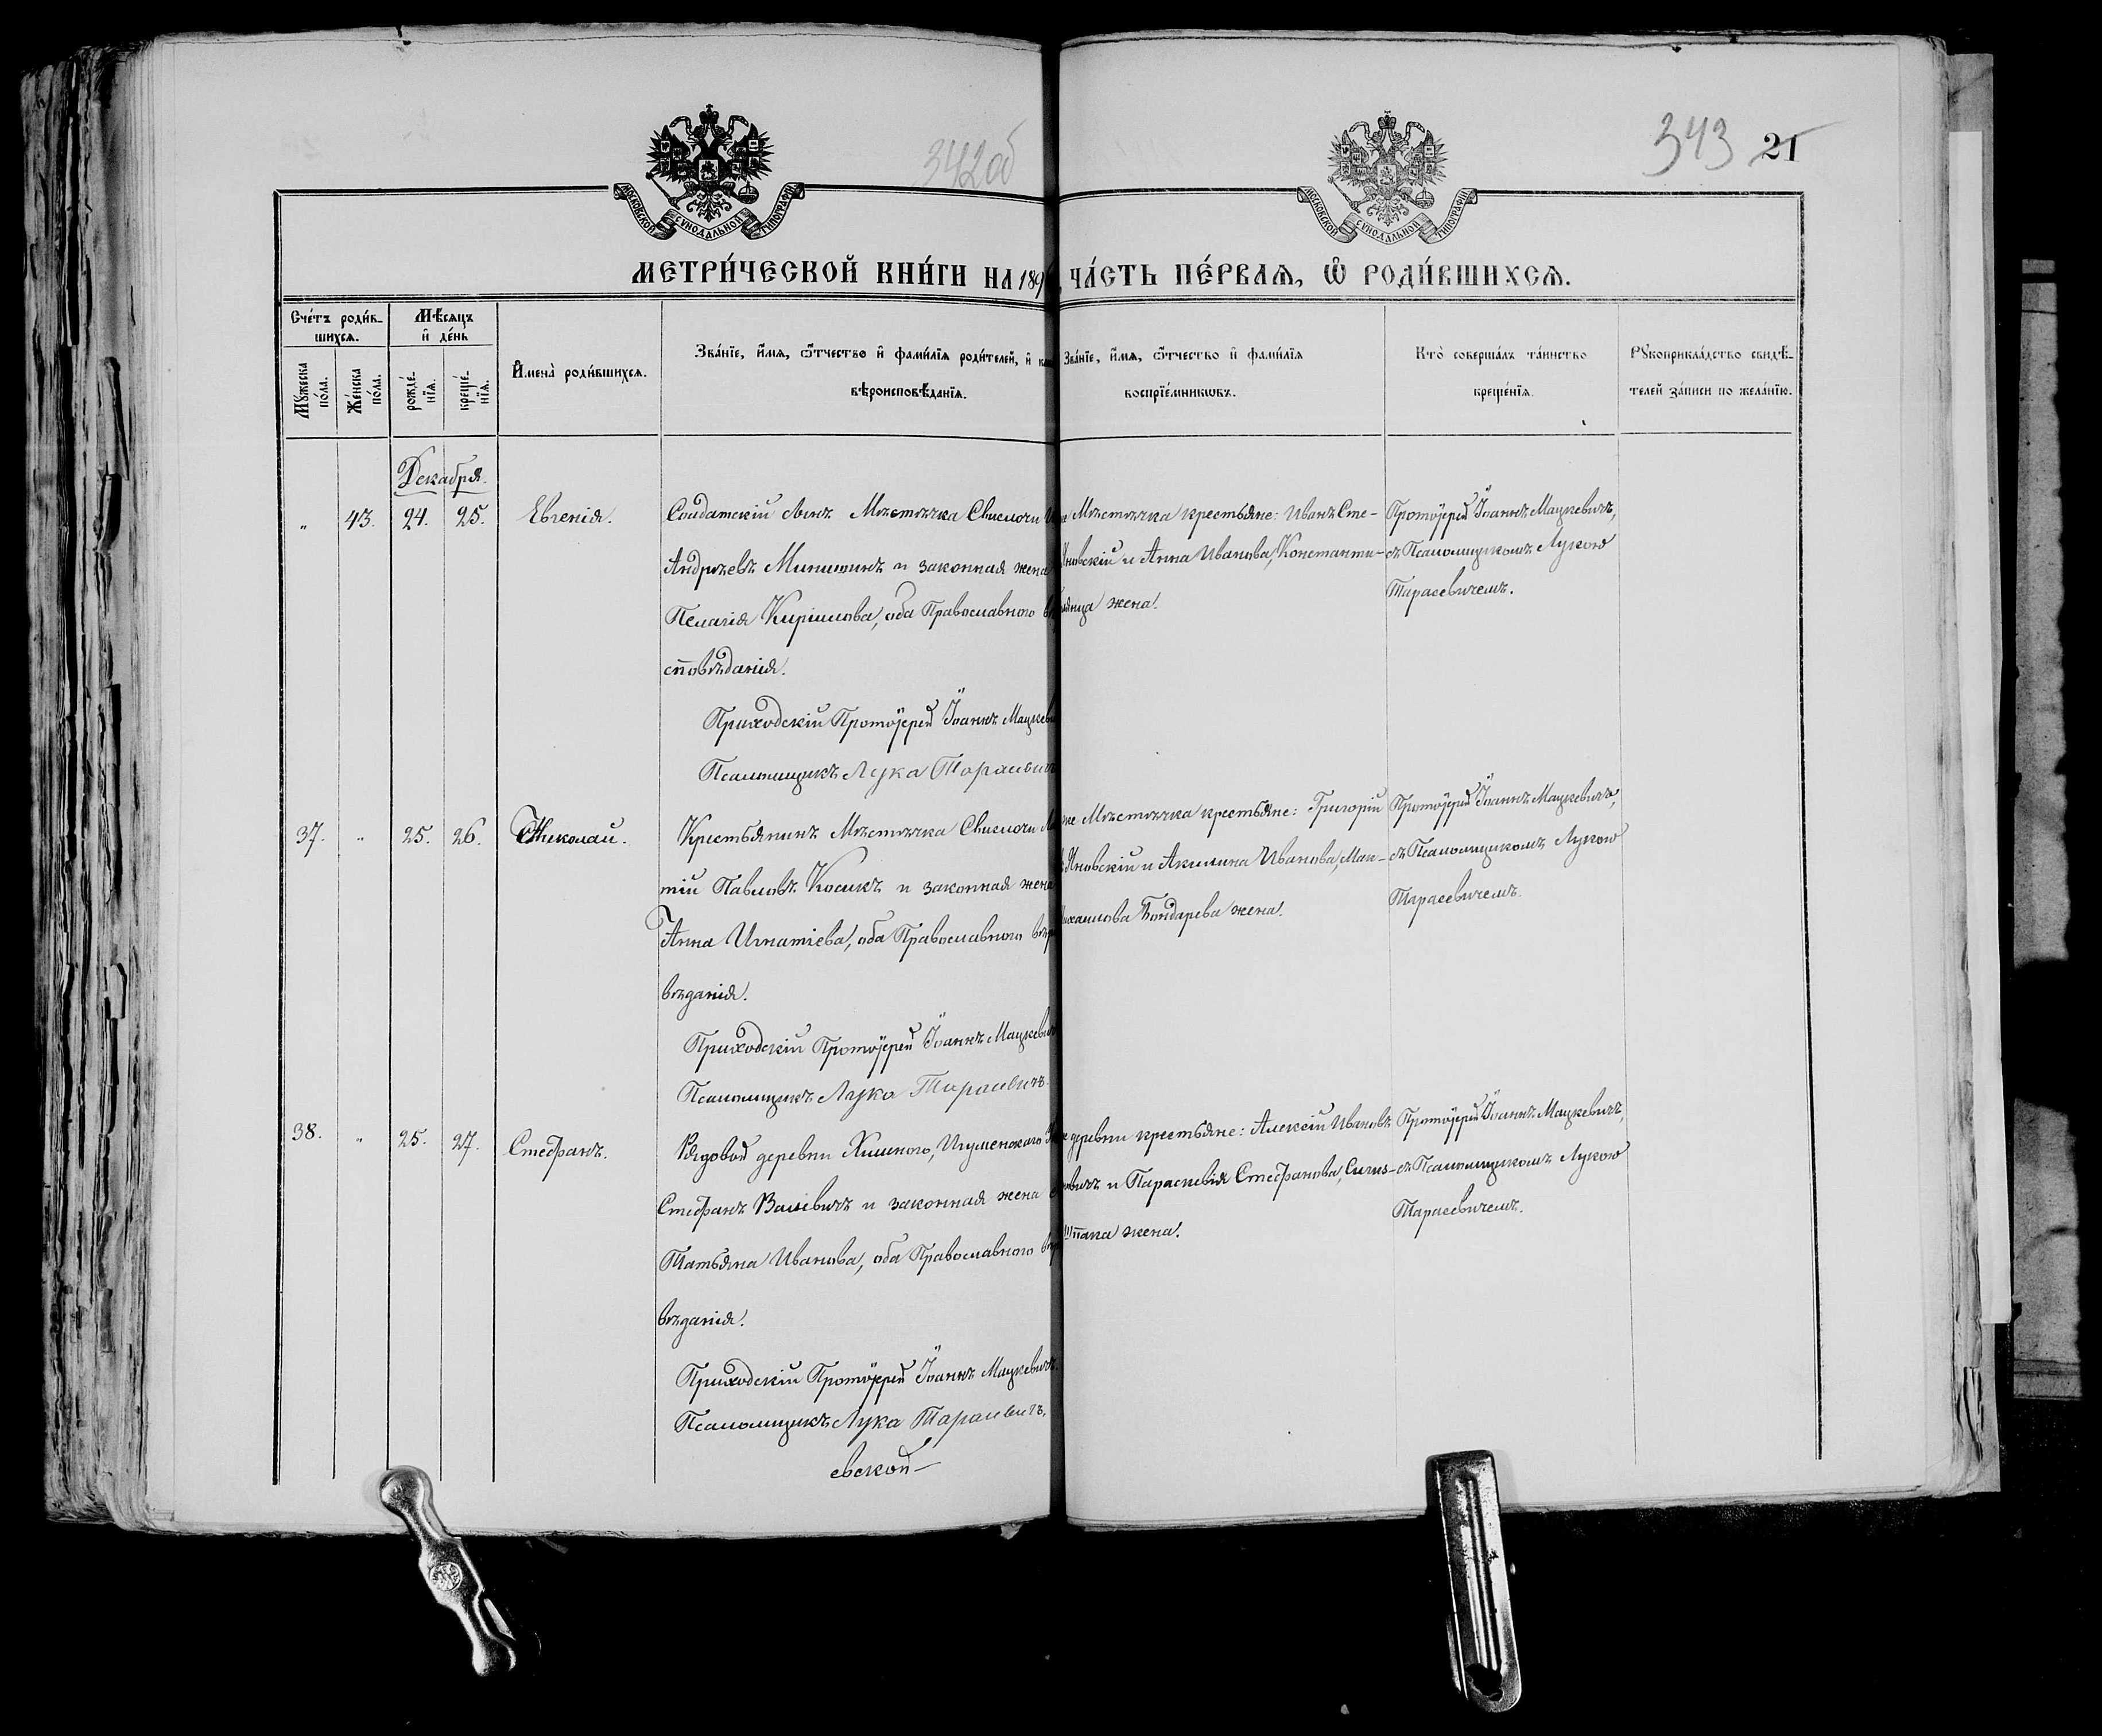 342об
343 21
МОСКОВСКОЙ СѴНОДАЛЬНОЙ ТИПОГРАФІИ
МОСКОВСКОЙ СѴНОДАЛЬНОЙ ТИПОГРАФІИ
МЕТРИ́ЧЕСКОЙ КНИ́ГИ НА 189
ЧА́СТЬ ПЕ́РВАѦ, Ѿ РОДИ́ВШИХСѦ.
Сче́тъ роди́в-
шихсѧ.
Мꙋжеска
по́ла.
Же́нска
по́ла.
Мѣ́сѧцъ
и҆ де́нь
рожде́-
нїѧ.
креще́-
нїѧ.
И҆мена̀ роди́вшихсѧ.
Зва́нїе, и҆́мѧ, ѻ҆́тчество и҆ фами́лїѧ роди́телей, и҆
вѣроисповѣ́данїѧ.
Зва́нїе, и҆́мѧ, ѻ҆́тчество и҆ фами́лїѧ
воспрїе́мникѡвъ.
Кто̀ соверша́лъ та́инство
креще́нїѧ.
Рꙋкоприкла́дство свидѣ́-
телей за́писи по жела́нїю.
Декабря.
„ 43. 24. 25. Евгенія.
Солдатскій сынъ Мѣстечка Свислочи
Андреевъ Минишинъ и законная жена
Пелагія Кирилова, оба Православнаго
сповѣданія.
Приходскій Протоіерей Іоаннъ Мацкеви
Псаломщикъ Лука Тарасевичъ
Мѣстечка крестьяне: Иванъ Сте-
Яновскій и Анна Иванова, Константи-
жена.
Протоіерей Іоаннъ Мацкевичъ,
съ Псаломщикомъ Лукою
Тарасевичемъ.
37. „ 25. 26. Николай.
Крестьянинъ Мѣстечка Свислочи
тій Павловъ Косикъ и законная жена
Анна Игнатіева, оба Православнаго
вѣданія.
Приходскій Протоіерей Іоаннъ Мацкеви
Псаломщикъ Лука Тарасевичъ
Мѣстечка крестьяне: Григорій
Яновскій и Акилина Иванова, Ман-
хаилова Бондарева жена.
Протоіерей Іоаннъ Мацкевичъ,
съ Псаломщикомъ Лукою
Тарасевичемъ.
38. „ 25. 27. Стефанъ.
Рядовой деревни Химного, Игуменскаго
Стефанъ Валевичъ и законная жена
Татьяна Иванова, оба Православнаго
вѣданія.
Приходскій Протоіерей Іоаннъ Мацкевичъ.
Псаломщикъ Лука Тарасевичъ.
евской
деревни крестьяне: Алексій Ивановъ
овичъ и Параскевія Стефанова,
жена.
Протоіерей Іоаннъ Мацкевичъ,
съ Псаломщикомъ Лукою
Тарасевичемъ.